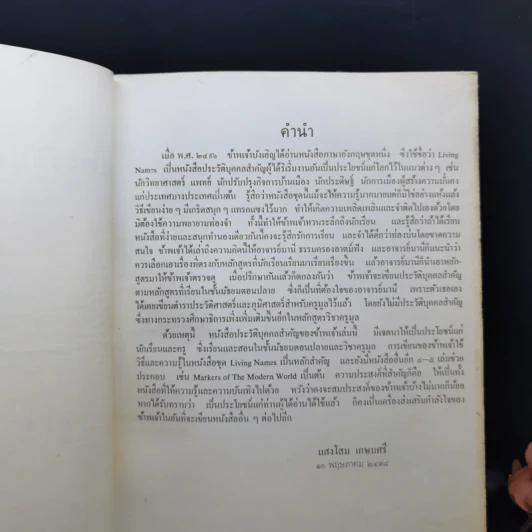 คำนำ
เมื่อ พ.ศ. ๒๔๙๖ ข้าพเจ้าบังเอิญได้อ่านหนังสือภาษาอังกฤษชุดหนึ่ง ซึ่งใช้ชื่อว่า Living
Names เป็นหนังสือประวัติบุคคลสำคัญผู้ได้ริเริ่มงานอันเป็นประโยชน์แก่โลกไว้ในแนวต่าง ๆ เช่น
นักวิทยาศาสตร์ แพทย์ นักปรับปรุงกิจการบ้านเมือง นักประดิษฐ์ นักการเมืองผู้สร้างความมั่นคง
แก่ประเทศบางประเทศเป็นต้น รู้สึกว่าหนังสือชุดนี้แม้จะให้ความรู้มากมายแต่ก็มิใช่อย่างแห้งแล้ง
วิธีเขียนง่าย ๆ มีเกร็ดสนุก ๆ แทรกแซงไว้มาก ทำให้เกิดความเพลิดเพลินและจำติดไปเองด้วยโดย
มิต้องใช้ความพยายามท่องจำ ทำให้ข้าพเจ้าหวนระลึกถึงนักเรียน และรู้สึกว่าถ้าได้เรียน
หนังสือที่ง่ายและสนุกทำนองเดียวกันนี้คงจะรู้สึกรักการเรียน และจำได้ดีกว่าท่องบ่นโดยขาดความ
สนใจ ข้าพเจ้าได้เล่าถึงความคิดให้อาจารย์มานี ธรรมครองอาตม์ฟัง และอาจารย์มานีก็แนะนำว่า
ควรเลือกเอาเรื่องที่ตรงกับหลักสูตรที่นักเรียนเรียนมาเรียบเรียงขึ้น แล้วอาจารย์มานีก็นำเอาหลัก-
สูตรมาให้ข้าพเจ้าตรวจดู เมื่อปรึกษากันแล้วก็ตกลงกันว่า ข้าพเจ้าจะเขียนประวัติบุคคลสำคัญ
ตามหลักสูตรที่เรียนในชั้นมัธยมตอนปลาย ซึ่งก็เป็นที่ต้องใจของอาจารย์มานี เพราะตัวเธอเอง
ได้เคยเขียนตำราประวัติศาสตร์และภูมิศาสตร์สำหรับครูมูลไว้แล้ว โดยยังไม่มีประวัติบุคคลสำคัญ
ซึ่งทางกระทรวงศึกษาธิการเพิ่งเพิ่มเติมขึ้นอีกในหลักสูตรวิชาครูมูล
ด้วยเหตุนี้ หนังสือประวัติบุคคลสำคัญของข้าพเจ้าเล่มนี้ มีเจตนาให้เป็นประโยชน์แก่
นักเรียนและครู ซึ่งเรียนและสอนในชั้นมัธยมตอนปลายและวิชาครูมูล การเขียนของข้าพเจ้าใช้
วิธีและความรู้ในหนังสือชุด Living Names เป็นหลักสำคัญ และยังมีหนังสืออื่นอีก ๔-๕ เล่มช่วย
ประกอบ เช่น Markers of The Modern World เป็นต้น ความประสงค์ที่สำคัญก็คือ ให้เป็นทั้ง
หนังสือที่ให้ความรู้และความบันเทิงไปด้วย หวังว่าคงจะสมประสงค์ของข้าพเจ้าบ้างไม่มากก็น้อย
หากได้รับทราบว่า เป็นประโยชน์แก่ท่านผู้ได้อ่านได้ใช้แล้ว ก็คงเป็นเครื่องส่งเสริมกำลังใจของ
ข้าพเจ้าในอันที่จะเขียนหนังสืออื่น ๆ ต่อไปอีก
แสงโสม เกษมศรี
๑๐ พฤษภาคม ๒๔๙๘